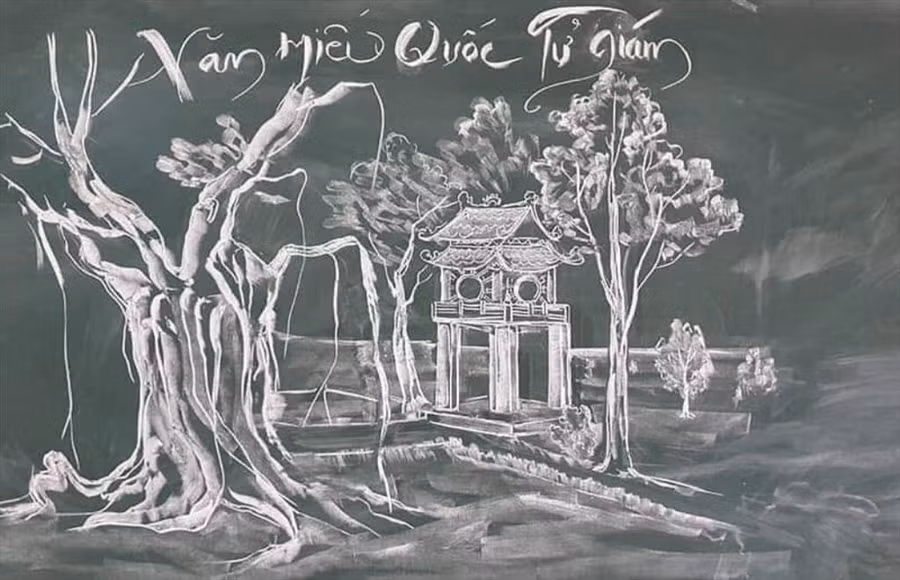 Văn Miếu Quốc Tử Giám